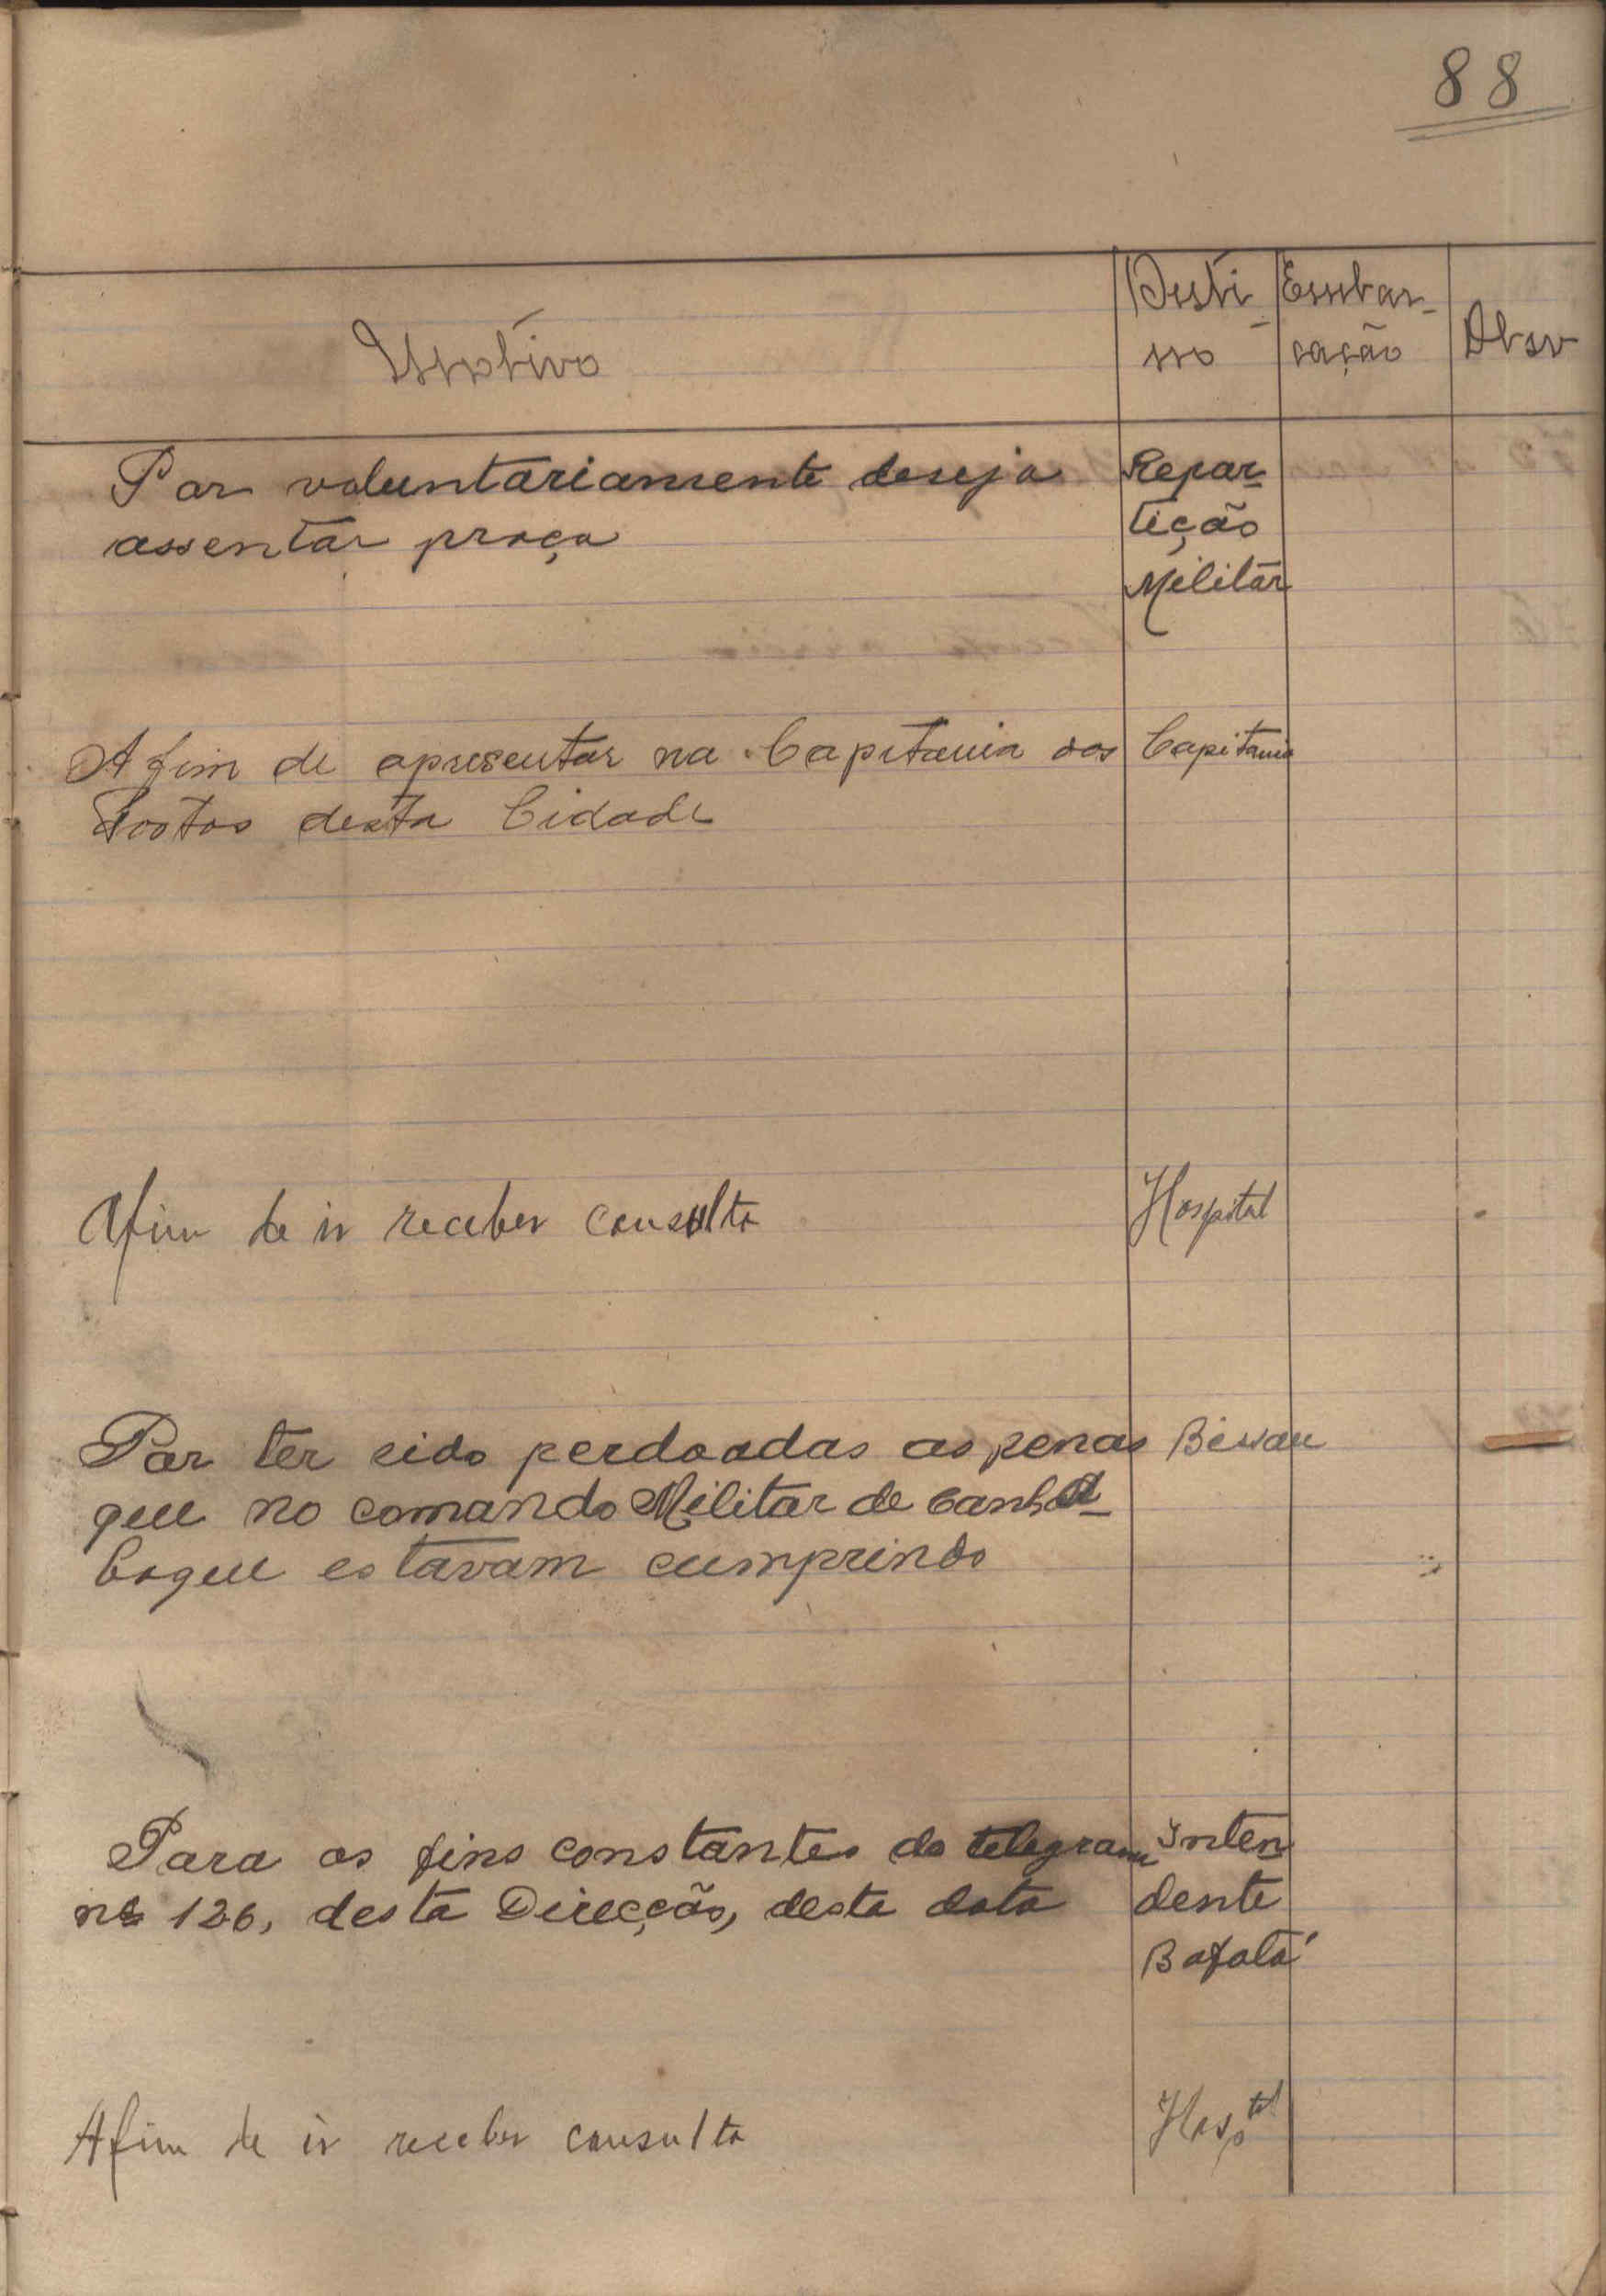 88
Motivo
Desti-
no
Embar-
cação
Obsv
Por voluntariamente deseja
assentar praça
Repar-
tição
Militar
Afim de apresentar na Capitania dos
Portos desta Cidade
Capitania
Afim de ir receber consulta
Hospital
Por ter sido perdoadas as penas
que no comando Militar de Canha-
boque estavam cumprindo
Bissau
Para os fins constantes do telegrama
nº 126, desta Direcção, desta data
Inten
dente
Bafatá
Afim de ir receber consulta
Hosptal